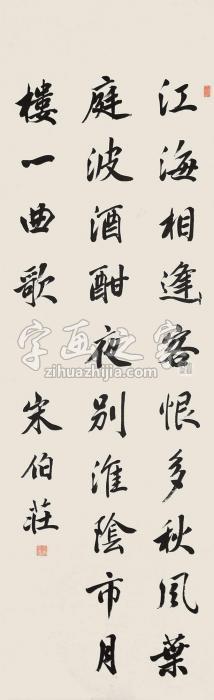 江海相逢客恨多秋風葉
庭波酒酣夜別淮陰市月
樓一曲歌 宋伯莊
字画之家
zihuazhijia.com